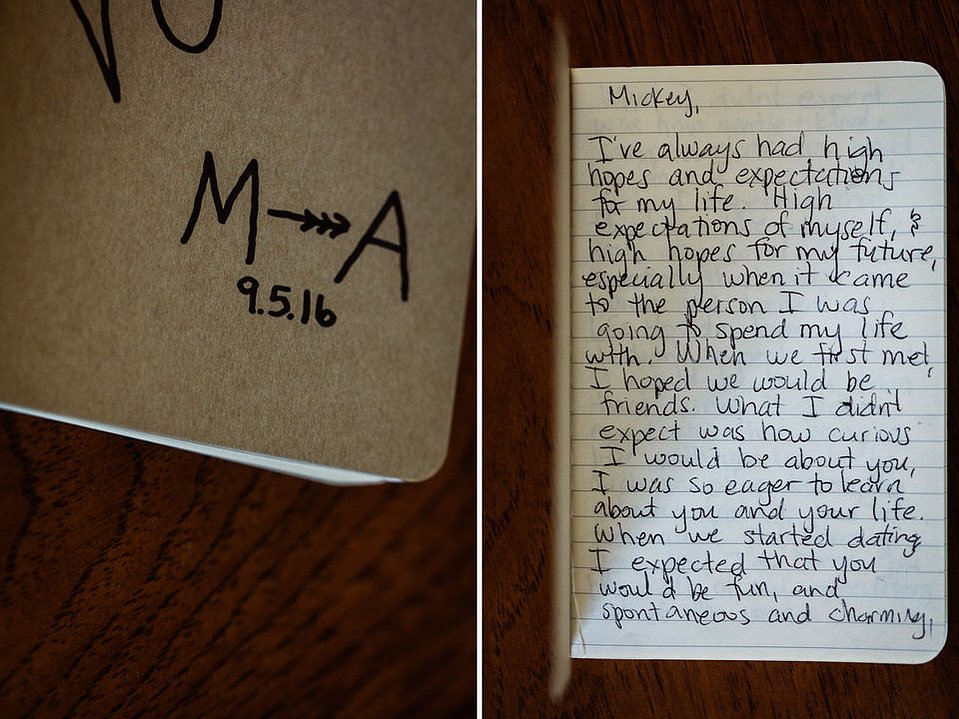 VO
M A
9.5.16
Mickey,
I've always had high
hopes and expectations
for my life. High
expectations of myself, &
high hopes for my future,
especially when it came
to the person I was
going to spend my life
with. When we first met,
I hoped we would be
friends. What I didn't
expect was how curious
I would be about you,
I was so eager to learn
about you and your life.
When we started dating
I expected that you
would be fun, and
spontaneous and charming,